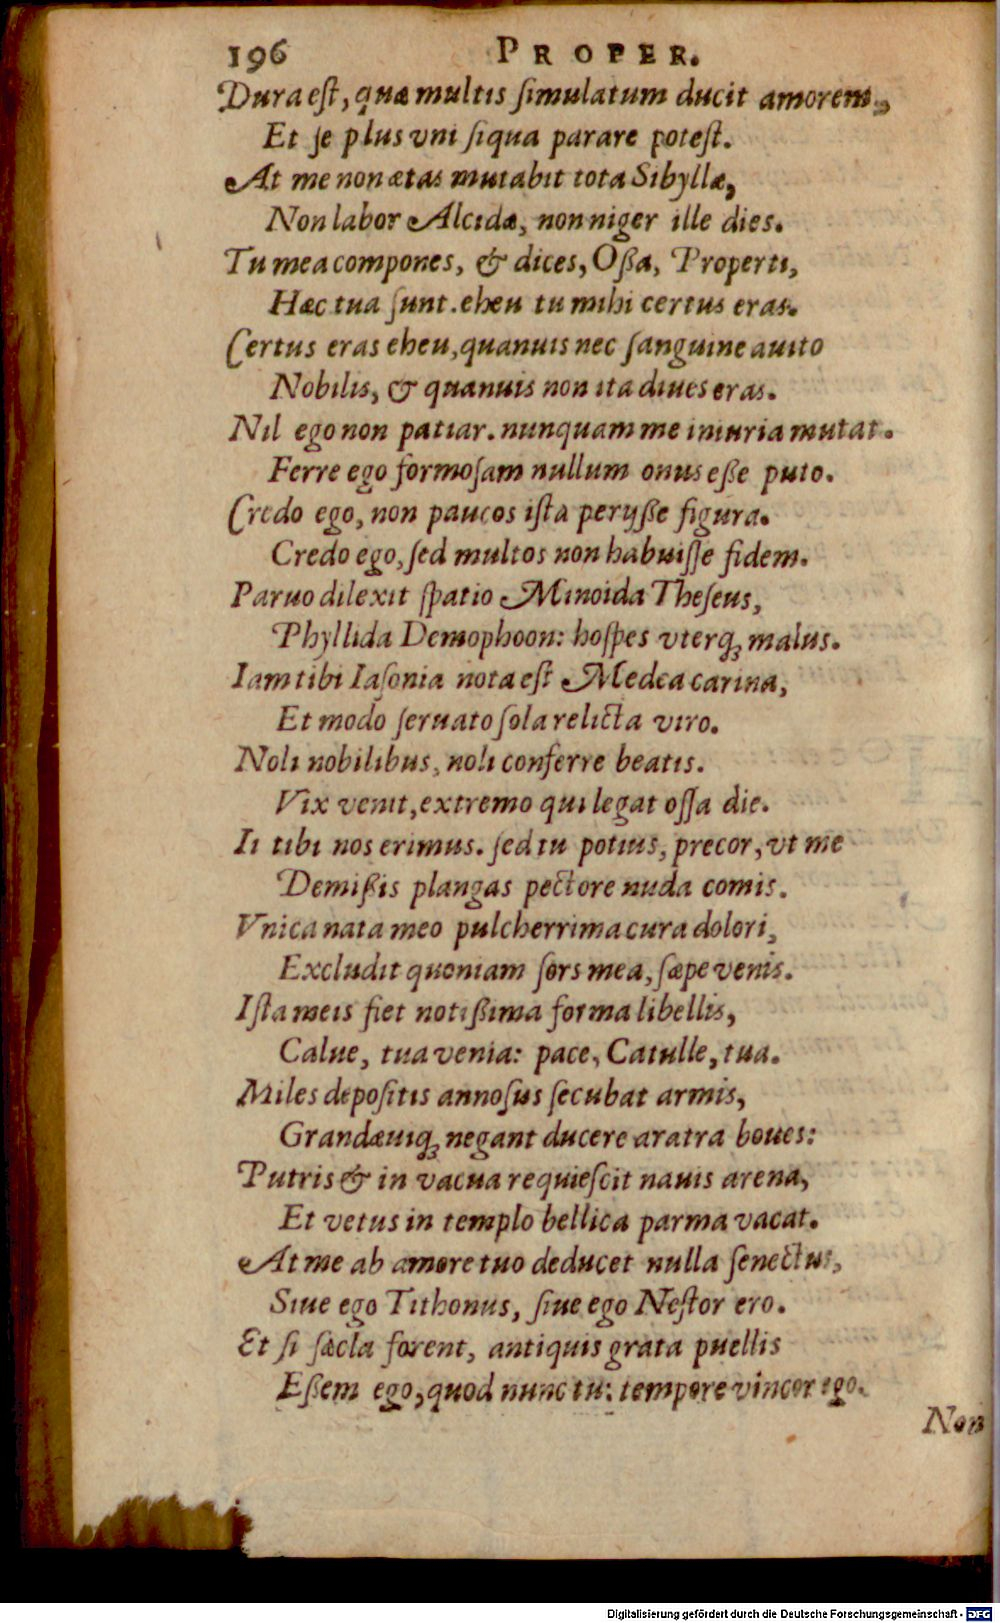 196 PROPER.
Dura est, quæ multis simulatum ducit amorem,
Et se plus vni siqua parare potest.
At me non ætas mutabit tota Sibyllæ,
Non labor Alcidæ, non niger ille dies.
Tu mea compones, & dices, Oßa, Properti,
Hæc tua sunt. eheu tu mihi certus eras.
Certus eras eheu, quanuis nec sanguine auito
Nobilis, & quanuis non ita diues eras.
Nil ego non patiar. nunquam me iniuria mutat.
Ferre ego formosam nullum onus eße puto.
Credo ego, non paucos ista perijße figura.
Credo ego, sed multos non habuisse fidem.
Paruo dilexit spatio Minoida Theseus,
Phyllida Demophoon: hospes vterq; malus.
Iam tibi Iasonia nota est Medea carina,
Et modo seruato sola relicta viro.
Noli nobilibus, noli conferre beatis.
Vix venit, extremo qui legat ossa die.
Ii tibi nos erimus. sed tu potius, precor, vt me
Demißis plangas pectore nuda comis.
Vnica nata meo pulcherrima cura dolori,
Excludit quoniam sors mea, sæpe venis.
Ista meis fiet notißima forma libellis,
Calue, tua venia: pace, Catulle, tua.
Miles depositis annosus secubat armis,
Grandæuiq; negant ducere aratra boues:
Putris & in vacua requiescit nauis arena,
Et vetus in templo bellica parma vacat.
At me ab amore tuo deducet nulla senectus,
Siue ego Tithonus, siue ego Nestor ero.
Et si sæcla forent, antiquis grata puellis
Eßem ego, quod nunc tu: tempore vincor ego.
Non
Digitalisierung gefördert durch die Deutsche Forschungsgemeinschaft - DFG